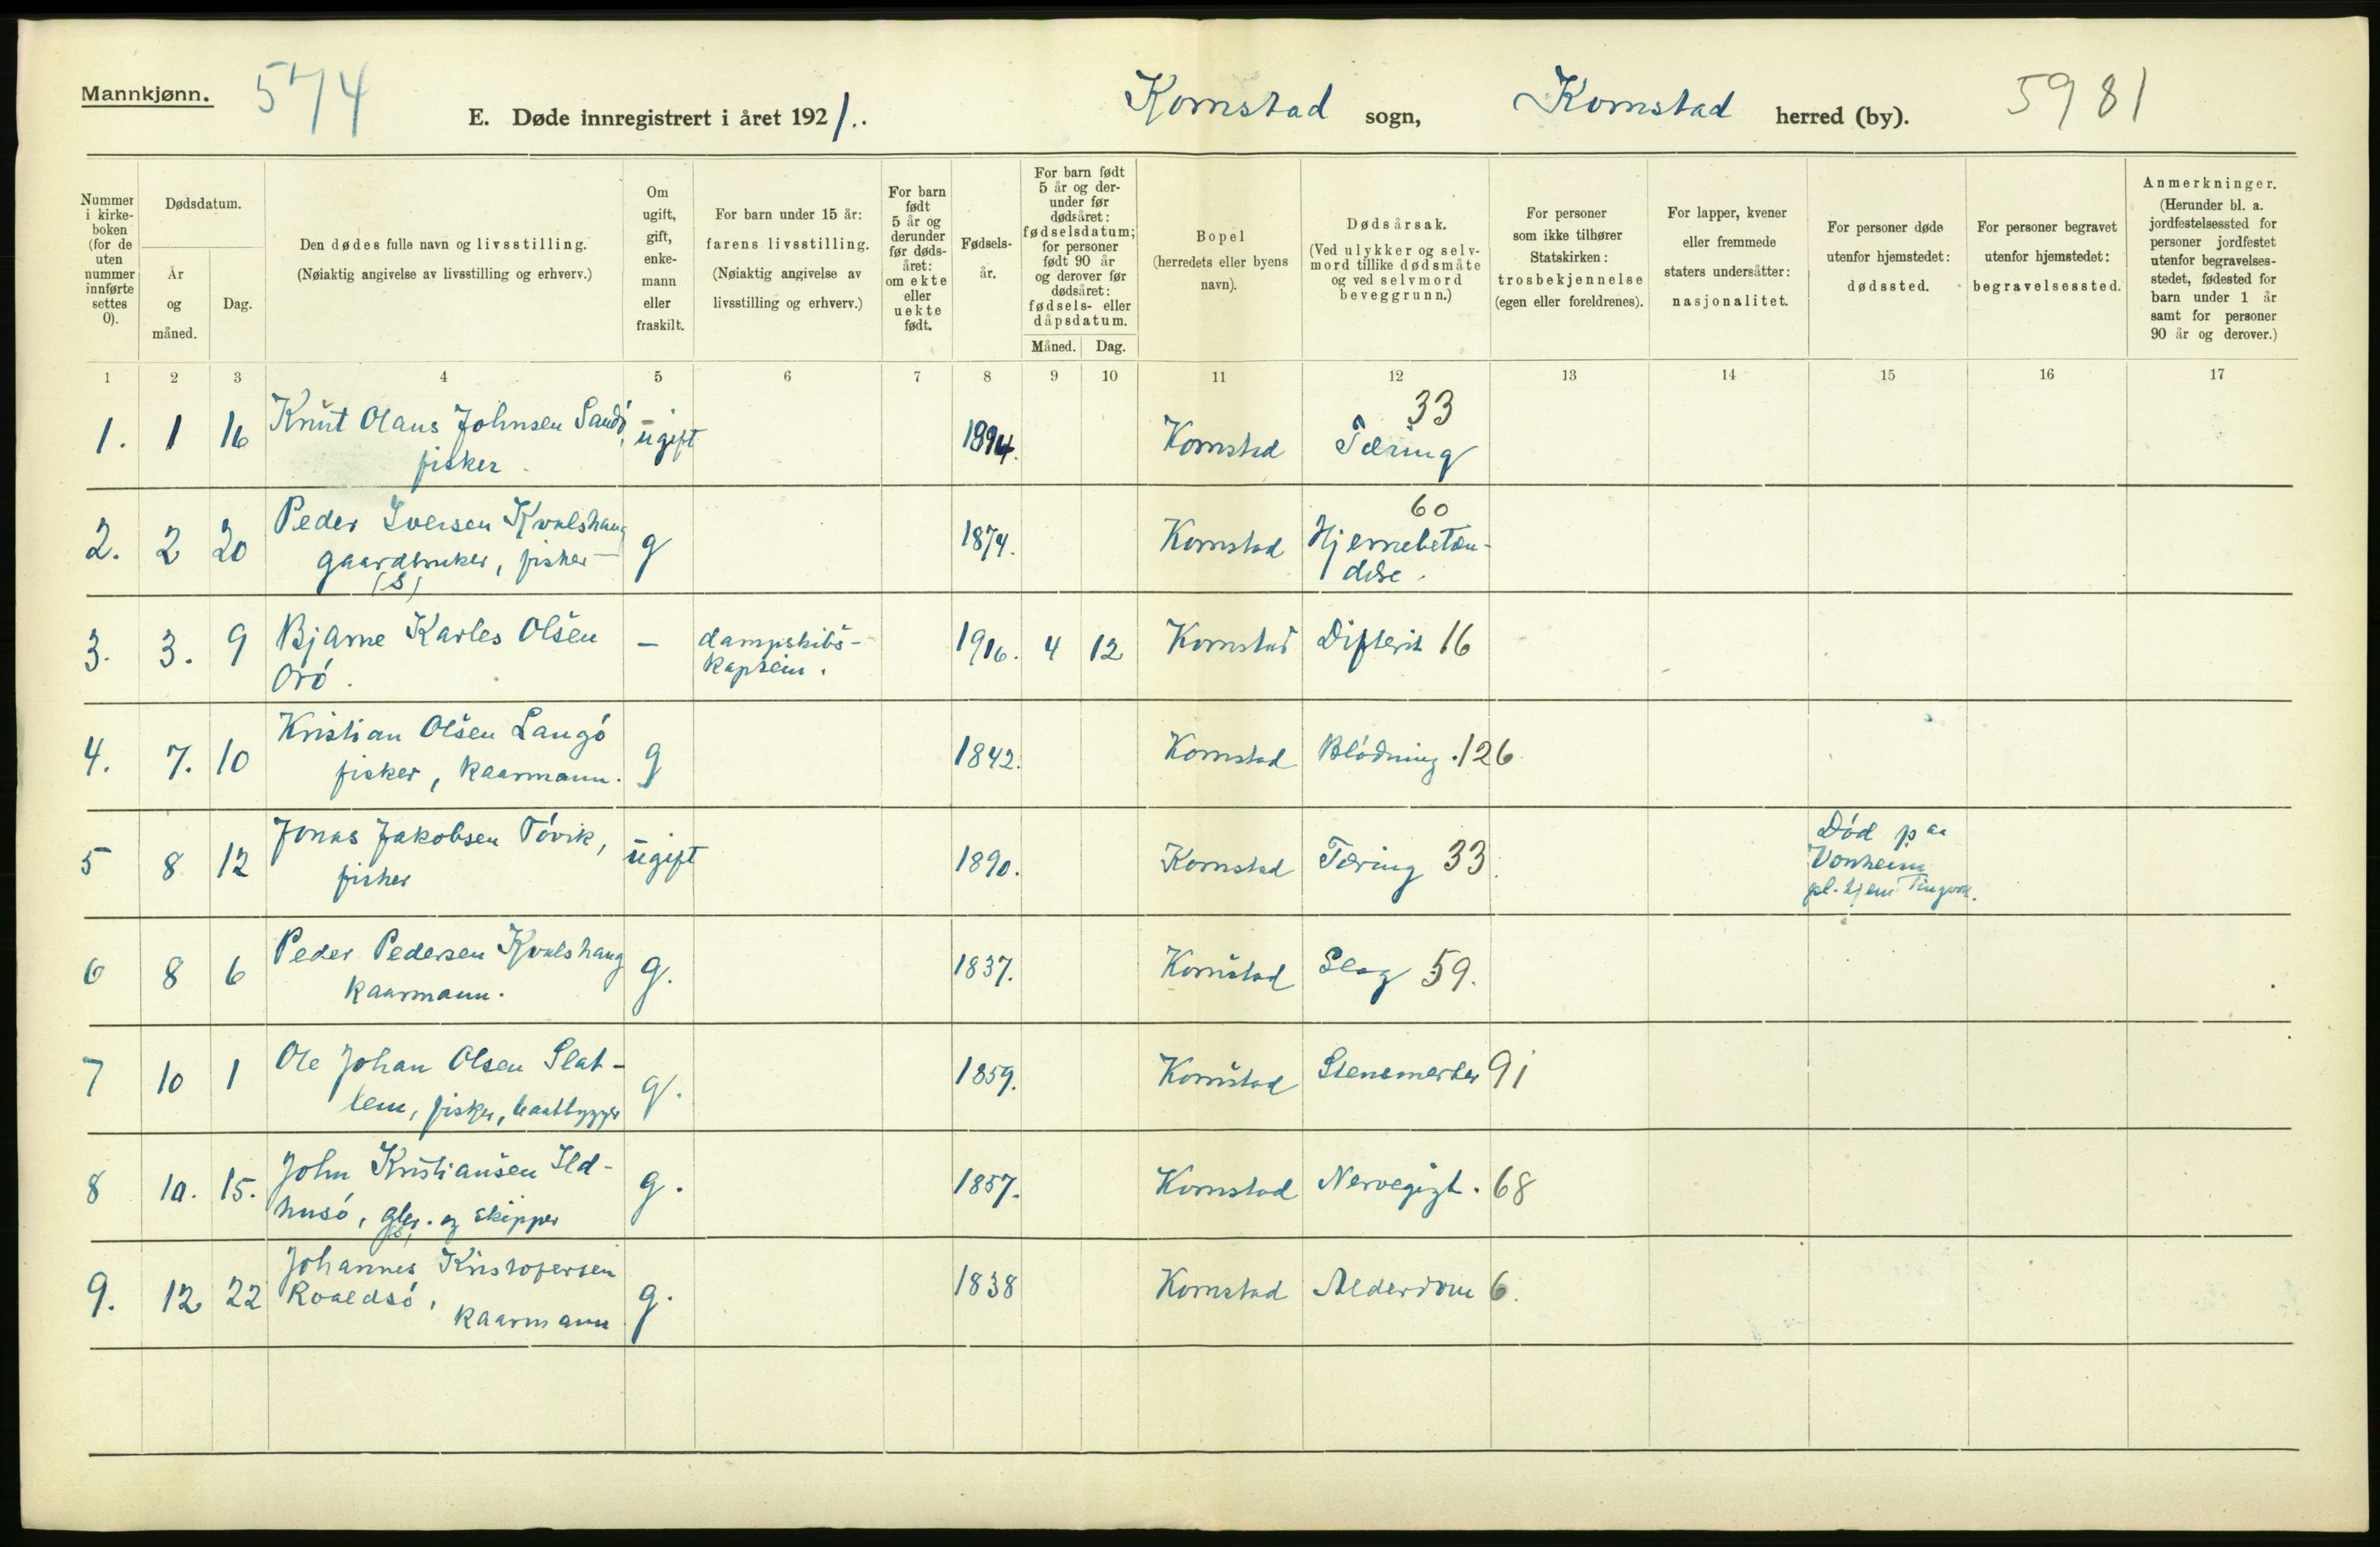 Mannkjønn.
574
E. Døde innregistrert i året 1921.
Kornstad sogn, Kornstad herred (by).
5981
Nummer i kirke-boken (for de uten nummer innførte settes 0).
Dødsdatum.
År og måned.
Dag.
Den dødes fulle navn og livsstilling.
(Nøiaktig angivelse av livsstilling og erhverv.)
Om ugift, gift, enke-mann eller fraskilt.
For barn under 15 år: farens livsstilling.
(Nøiaktig angivelse av livsstilling og erhverv.)
For barn født 5 år og derunder før døds-året: om ekte eller uekte født.
Fødsels-år.
For barn født 5 år og der-under før dødsåret: fødselsdatum; for personer født 90 år og derover før dødsåret: fødsels- eller dåpsdatum.
Måned. Dag.
Bopel (herredets eller byens navn).
Dødsårsak.
(Ved ulykker og selv-mord tillike dødsmåte og ved selvmord beveggrunn.)
For personer som ikke tilhører Statskirken: trosbekjennelse (egen eller foreldrenes).
For lapper, kvener eller fremmede staters undersåtter: nasjonalitet.
For personer døde utenfor hjemstedet: dødssted.
For personer begravet utenfor hjemstedet: begravelsessted.
Anmerkninger.
(Herunder bl. a. jordfestelsessted for personer jordfestet utenfor begravelses-stedet, fødested for barn under 1 år samt for personer 90 år og derover.)
1 2 3 4 5 6 7 8 9 10 11 12 13 14 15 16 17
1. 1 16 Knut Olaus Johnsen Sandø, ugift 1894. Kornstad Tæring 33
fisker.
2. 2 20 Peder Iversen Kvalshaug g 1874. Kornstad Hjernebetæn- 60
gaardbruker, fisker delse.
(S)
3. 3. 9 Bjarne Karles Olsen — dampskibs- 1916. 4 12 Kornstad Difterit 16
Orø. kaptein.
4. 7. 10 Kristian Olsen Langø g 1842. Kornstad Blødning. 126
fisker, kaarmann.
5 8 12 Jonas Jakobsen Tøvik, ugift 1890. Kornstad Tæring 33. Død paa
fisker Vonheim
pl. hjem Tingvoll.
6 8 6 Peder Pedersen Kvalshaug g. 1837. Kornstad Slag 59.
kaarmann.
7 10 1 Ole Johan Olsen Slat- g. 1859. Kornstad Stensmerter 91
lem, fisker, baatbygger
8 10. 15. John Kristiansen Ild- g. 1857. Kornstad Nervegigt. 68
husø, gbr. og skipper
9. 12 22 Johannes Kristofersen g. 1838 Kornstad Alderdom 6.
Roaldsø,
kaarmann